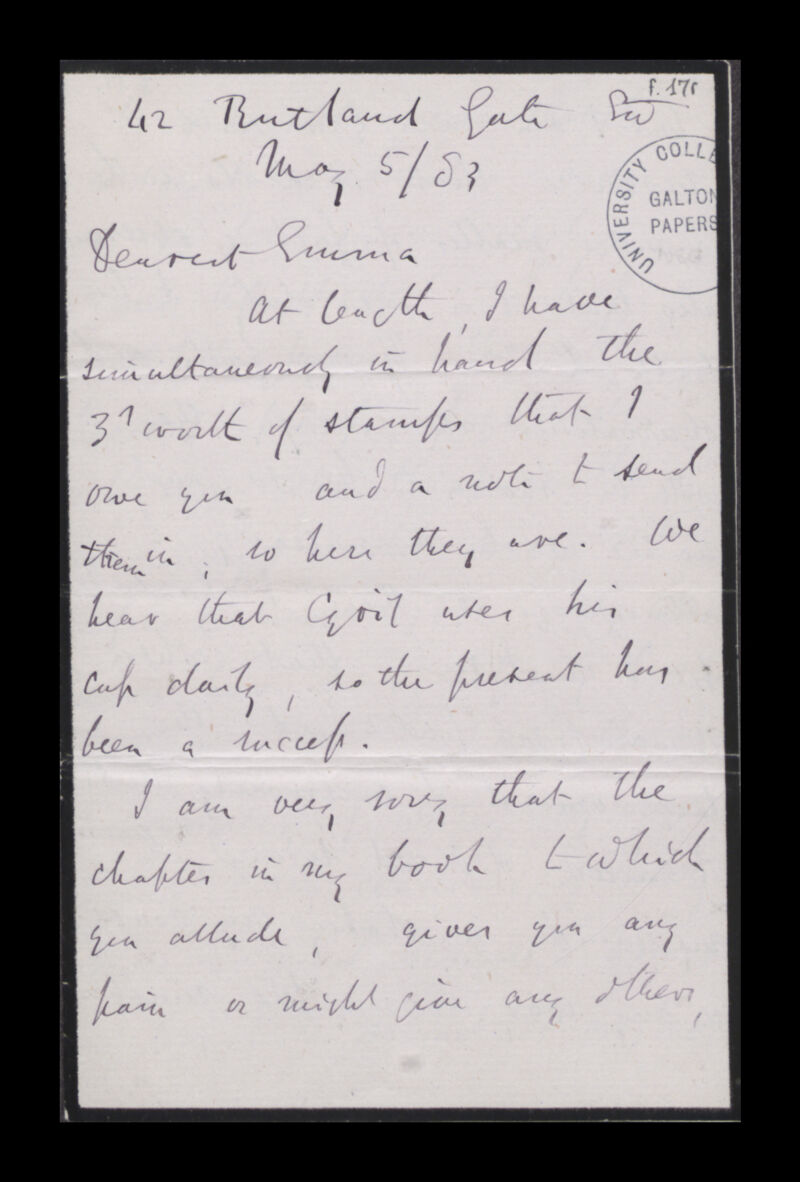 f. 17r
42 Rutland Gate SW
May 5/83
UNIVERSITY COLLE
GALTON
PAPERS
Dearest Emma
At length, I have
simultaneously in hand the
3d worth of stamps that I
owe you and a note to send
them in, so here they are. We
hear that Cyril uses his
cup daily, so the present has
been a success.
I am very sorry that the
chapter in my book to which
you allude, gives you any
pain or might give any others,